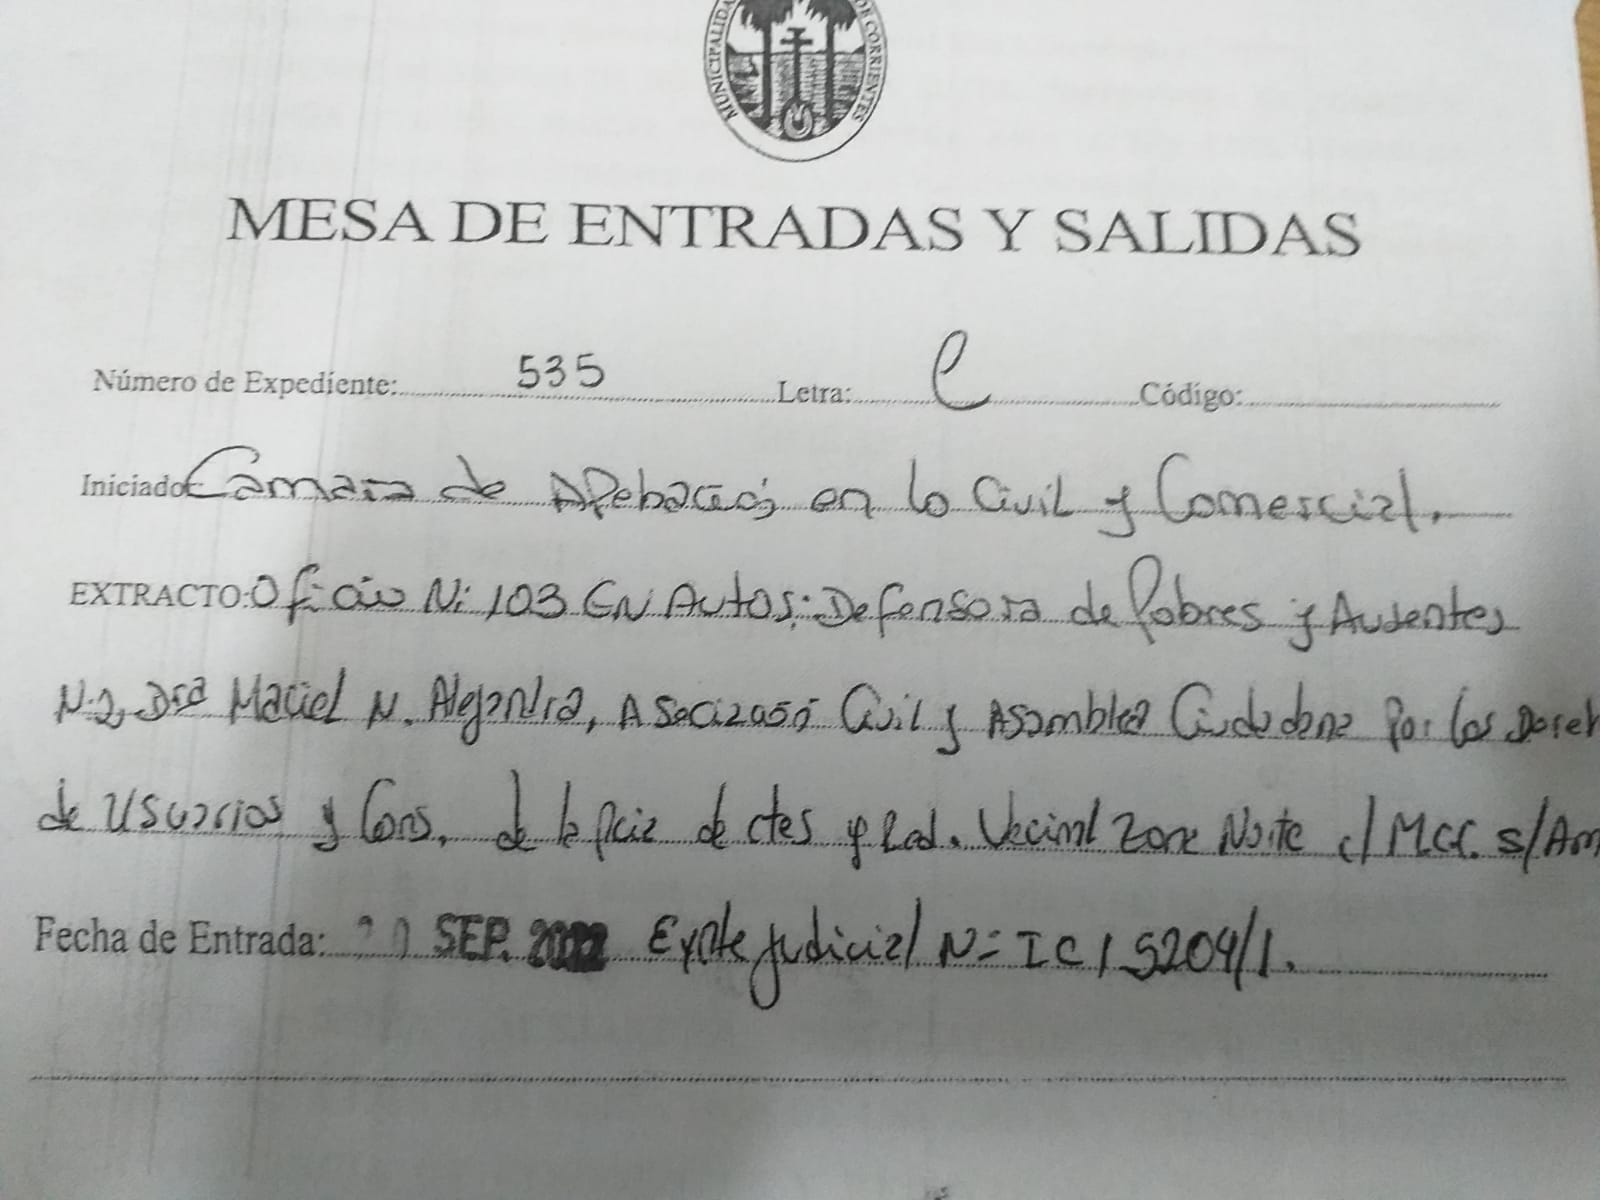 MUNICIPALIDAD DE CORRIENTES
MESA DE ENTRADAS Y SALIDAS
Número de Expediente: 535 Letra: C Código:
Iniciado: Camara de Apelación en lo Civil y Comercial.
EXTRACTO: Oficio N: 103 EN Autos: Defensora de Pobres y Ausentes
N.2, Dra Maciel N. Alejandra, Asociación Civil y Asamblea Ciudadana Por los Derech
de Usuarios y Cons. de la Pcia de ctes y Red. Vecinal Zona Norte c/ MCC. s/Am
Fecha de Entrada: SEP. 2022 Expte Judicial N= IC1 5204/1.